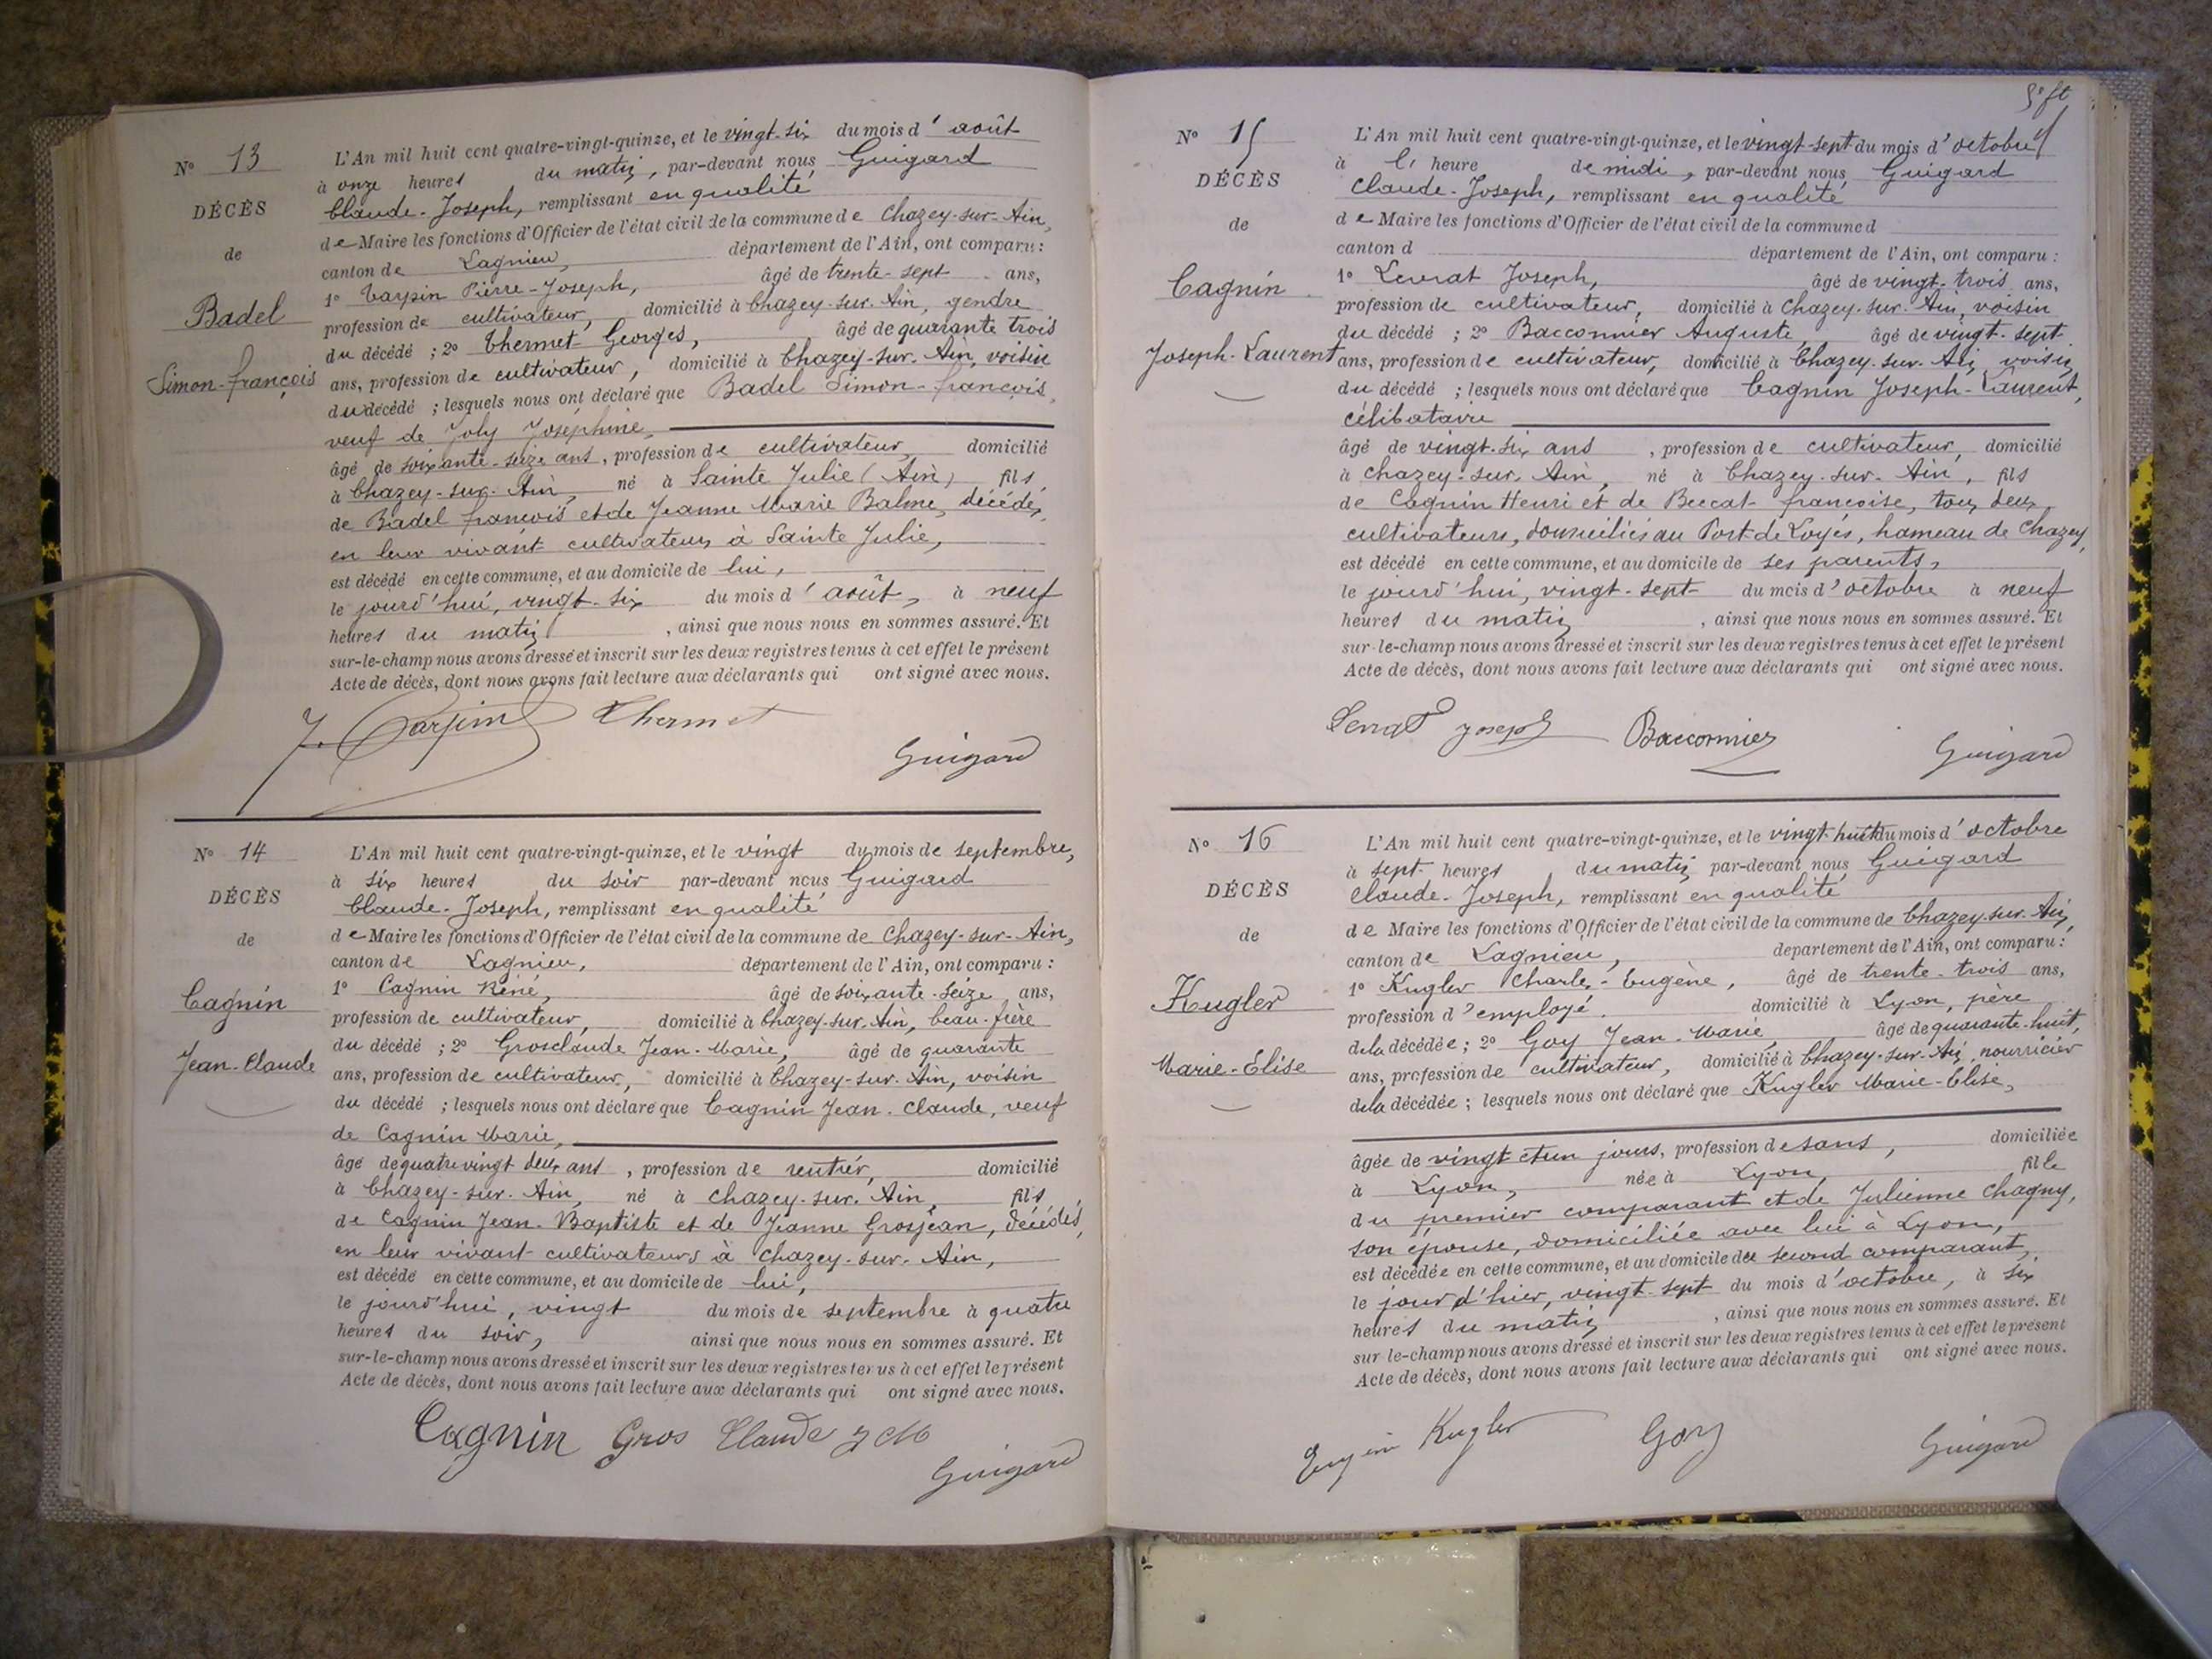 N° 13
DÉCÈS
de
Badel
Simon-françois
L'An mil huit cent quatre-vingt-quinze, et le vingt-six du mois d'août
à onze heures du matin, par-devant nous Guigard
Claude-Joseph, remplissant en qualité
de Maire les fonctions d'Officier de l'état civil de la commune de Chazey-sur-Ain,
canton de Lagnieu, département de l'Ain, ont comparu :
1° Carpin Pierre-Joseph, âgé de trente-sept ans,
profession de cultivateur, domicilié à Chazey-sur-Ain, gendre
du décédé ; 2° Thermet Georges, âgé de quarante trois
ans, profession de cultivateur, domicilié à Chazey-sur-Ain, voisin
du décédé ; lesquels nous ont déclaré que Badel Simon-françois,
veuf de Joly Joséphine,
âgé de soixante-seize ans, profession de cultivateur, domicilié
à Chazey-sur-Ain, né à Sainte Julie (Ain) fils
de Badel françois et de Jeanne Marie Balme, décédés,
en leur vivant cultivateurs à Sainte Julie,
est décédé en cette commune, et au domicile de lui,
le jourd'hui, vingt-six du mois d'août, à neuf
heures du matin, ainsi que nous nous en sommes assuré. Et
sur-le-champ nous avons dressé et inscrit sur les deux registres tenus à cet effet le présent
Acte de décès, dont nous avons fait lecture aux déclarants qui ont signé avec nous.
J. Carpin Thermet
Guigard
N° 14
DÉCÈS
de
Cagnin
Jean-Claude
L'An mil huit cent quatre-vingt-quinze, et le vingt du mois de septembre,
à six heures du soir par-devant nous Guigard
Claude-Joseph, remplissant en qualité
de Maire les fonctions d'Officier de l'état civil de la commune de Chazey-sur-Ain,
canton de Lagnieu, département de l'Ain, ont comparu :
1° Cagnin Réné, âgé de soixante-seize ans,
profession de cultivateur, domicilié à Chazey-sur-Ain, beau-frère
du décédé ; 2° Grosclaude Jean-Marie, âgé de quarante
ans, profession de cultivateur, domicilié à Chazey-sur-Ain, voisin
du décédé ; lesquels nous ont déclaré que Cagnin Jean-Claude, veuf
de Cagnin Marie,
âgé de quatre vingt deux ans, profession de rentier, domicilié
à Chazey-sur-Ain, né à Chazey-sur-Ain, fils
de Cagnin Jean-Baptiste et de Jeanne Grosjean, décédés,
en leur vivant cultivateurs à Chazey-sur-Ain,
est décédé en cette commune, et au domicile de lui,
le jourd'hui, vingt du mois de septembre à quatre
heures du soir, ainsi que nous nous en sommes assuré. Et
sur-le-champ nous avons dressé et inscrit sur les deux registres tenus à cet effet le présent
Acte de décès, dont nous avons fait lecture aux déclarants qui ont signé avec nous.
Cagnin Gros Claude J M
Guigard
N° 15
DÉCÈS
de
Cagnin
Joseph-Laurent
L'An mil huit cent quatre-vingt-quinze, et le vingt-sept du mois d'octobre
à l' heure de midi, par-devant nous Guigard
Claude-Joseph, remplissant en qualité
de Maire les fonctions d'Officier de l'état civil de la commune d
canton d département de l'Ain, ont comparu :
1° Levrat Joseph, âgé de vingt-trois ans,
profession de cultivateur, domicilié à Chazey-sur-Ain, voisin
du décédé ; 2° Bacconnier Auguste, âgé de vingt-sept
ans, profession de cultivateur, domicilié à Chazey-sur-Ain, voisin
du décédé ; lesquels nous ont déclaré que Cagnin Joseph-Laurent,
célibataire
âgé de vingt-six ans, profession de cultivateur, domicilié
à Chazey-sur-Ain, né à Chazey-sur-Ain, fils
de Cagnin Henri et de Beccat françoise, tous deux
cultivateurs, domiciliés au Port de Loyes, hameau de Chazey,
est décédé en cette commune, et au domicile de ses parents,
le jourd'hui, vingt-sept du mois d'octobre à neuf
heures du matin, ainsi que nous nous en sommes assuré. Et
sur-le-champ nous avons dressé et inscrit sur les deux registres tenus à cet effet le présent
Acte de décès, dont nous avons fait lecture aux déclarants qui ont signé avec nous.
Levrat Joseph Bacconnier
Guigard
N° 16
DÉCÈS
de
Kugler
Marie-Elise
L'An mil huit cent quatre-vingt-quinze, et le vingt-huit du mois d'octobre
à sept heures du matin par-devant nous Guigard
Claude-Joseph, remplissant en qualité
de Maire les fonctions d'Officier de l'état civil de la commune de Chazey-sur-Ain,
canton de Lagnieu, département de l'Ain, ont comparu :
1° Kugler Charles-Eugène, âgé de trente-trois ans,
profession d'employé domicilié à Lyon, père
de la décédée ; 2° Goy Jean-Marie, âgé de quarante-huit,
ans, profession de cultivateur, domicilié à Chazey-sur-Ain, nourricier
de la décédée ; lesquels nous ont déclaré que Kugler Marie-Elise,
âgée de vingt et un jours, profession de sans, domiciliée
à Lyon, née à Lyon, fille
du premier comparant et de Julienne Chagny,
son épouse, domiciliée avec lui à Lyon,
est décédée en cette commune, et au domicile du second comparant,
le jour d'hier, vingt-sept du mois d'octobre, à six
heures du matin, ainsi que nous nous en sommes assuré. Et
sur le-champ nous avons dressé et inscrit sur les deux registres tenus à cet effet le présent
Acte de décès, dont nous avons fait lecture aux déclarants qui ont signé avec nous.
Eugène Kugler Goy
Guigard